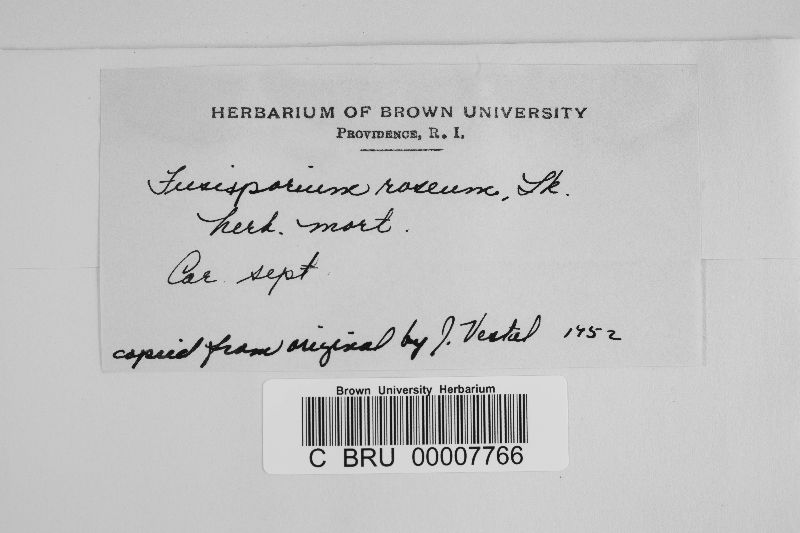 HERBARIUM OF BROWN UNIVERSITY
PROVIDENCE, R. I.
Fusisporium roseum, Lk.
herb. mort.
Car. sept
copied from original by J. Vestal 1952
Brown University Herbarium
C BRU 00007766